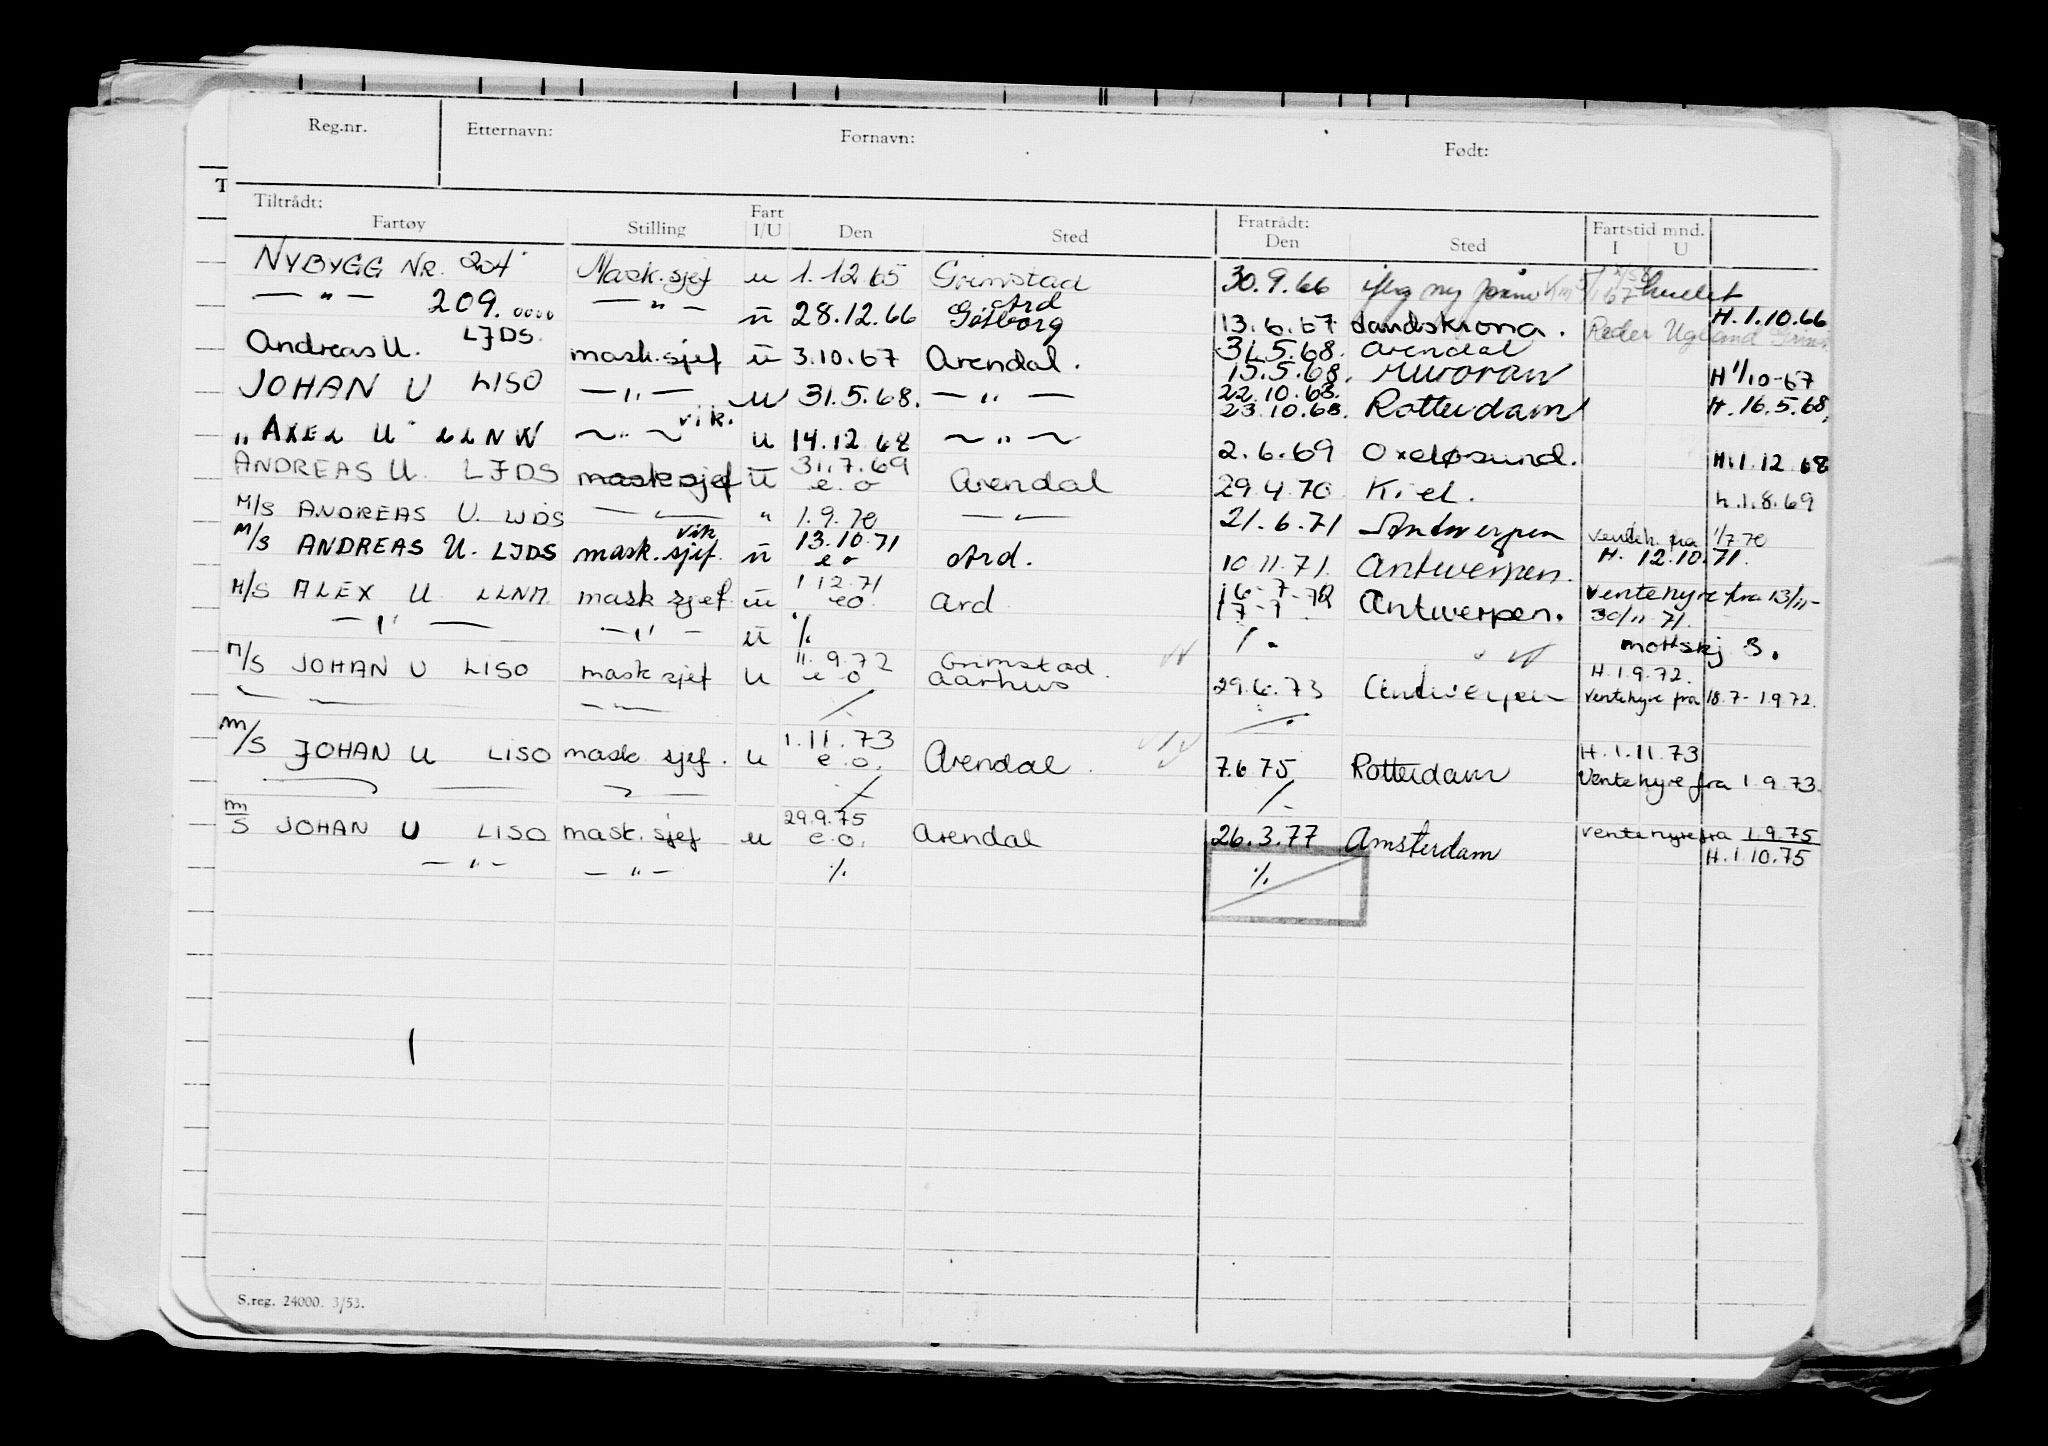 Reg.nr. Etternavn: Fornavn: Født:
T
Tiltrådt: Fratrådt:
Fartøy Stilling Fart I/U Den Sted Den Sted Fartstid mnd. I U
NYBYGG NR. 204 Mask.sjef u 1.12.65 Grimstad 30.9.66 iflg ny
— " — 209. — " — u 28.12.66 Ard Gøtborg 13.6.67 Landskrona. H.1.10.66
Reder Ugland
Andreas U. LJDS. mask.sjef u 3.10.67 Arendal. 31.5.68. Arendal
15.5.68. Muroran H 1/10-67
JOHAN U LISO — " — u 31.5.68. — " — 22.10.68.
23.10.68. Rotterdam H. 16.5.68,
"AXEL U" LLNW ~ " ~ vik. u 14.12.68 ~ " ~ 2.6.69 Oxeløsund. H.1.12 68
ANDREAS U. LJDS mask sjef u 31.7.69 e.o Arendal 29.4.70 Kiel. h.1.8.69
M/S ANDREAS U. LJDS — " — " 1.9.70 — " — 21.6.71 Antwerpen venteh. fra 1/7.70
M/S ANDREAS U. LJDS mask.sjef. vik u 13.10.71 e o Ard. 10.11.71. Antwerpen. H. 12.10.71.
M/S ALEX U LLNM. mask sjef. u 1.12.71 eo. Ard 16-7-72 Antwerpen. Ventehyre fra 13/11-
17-7 30/11 71.
— " — — " — u ./. ./. mottskj 3.
M/S JOHAN U LISO mask sjef u 11.9.72 e o Grimstad. Aarhus 29.6.73 Antwerpen H.1.9.72.
Ventehyre fra 18.7-1.9.72.
— " — ./. ./.
M/S JOHAN U LISO mask sjef. u 1.11.73 e.o. Arendal 7.6.75 Rotterdam H.1.11.73
Ventehyre fra 1.9.73.
./. ./.
M/S JOHAN U LISO mask.sjef u 29.9.75 e.o. Arendal 26.3.77 Amsterdam ventehyre fra 1.9.75
H.1.10.75
— " — — " — ./. ./.
S.reg. 24000. 3/53.